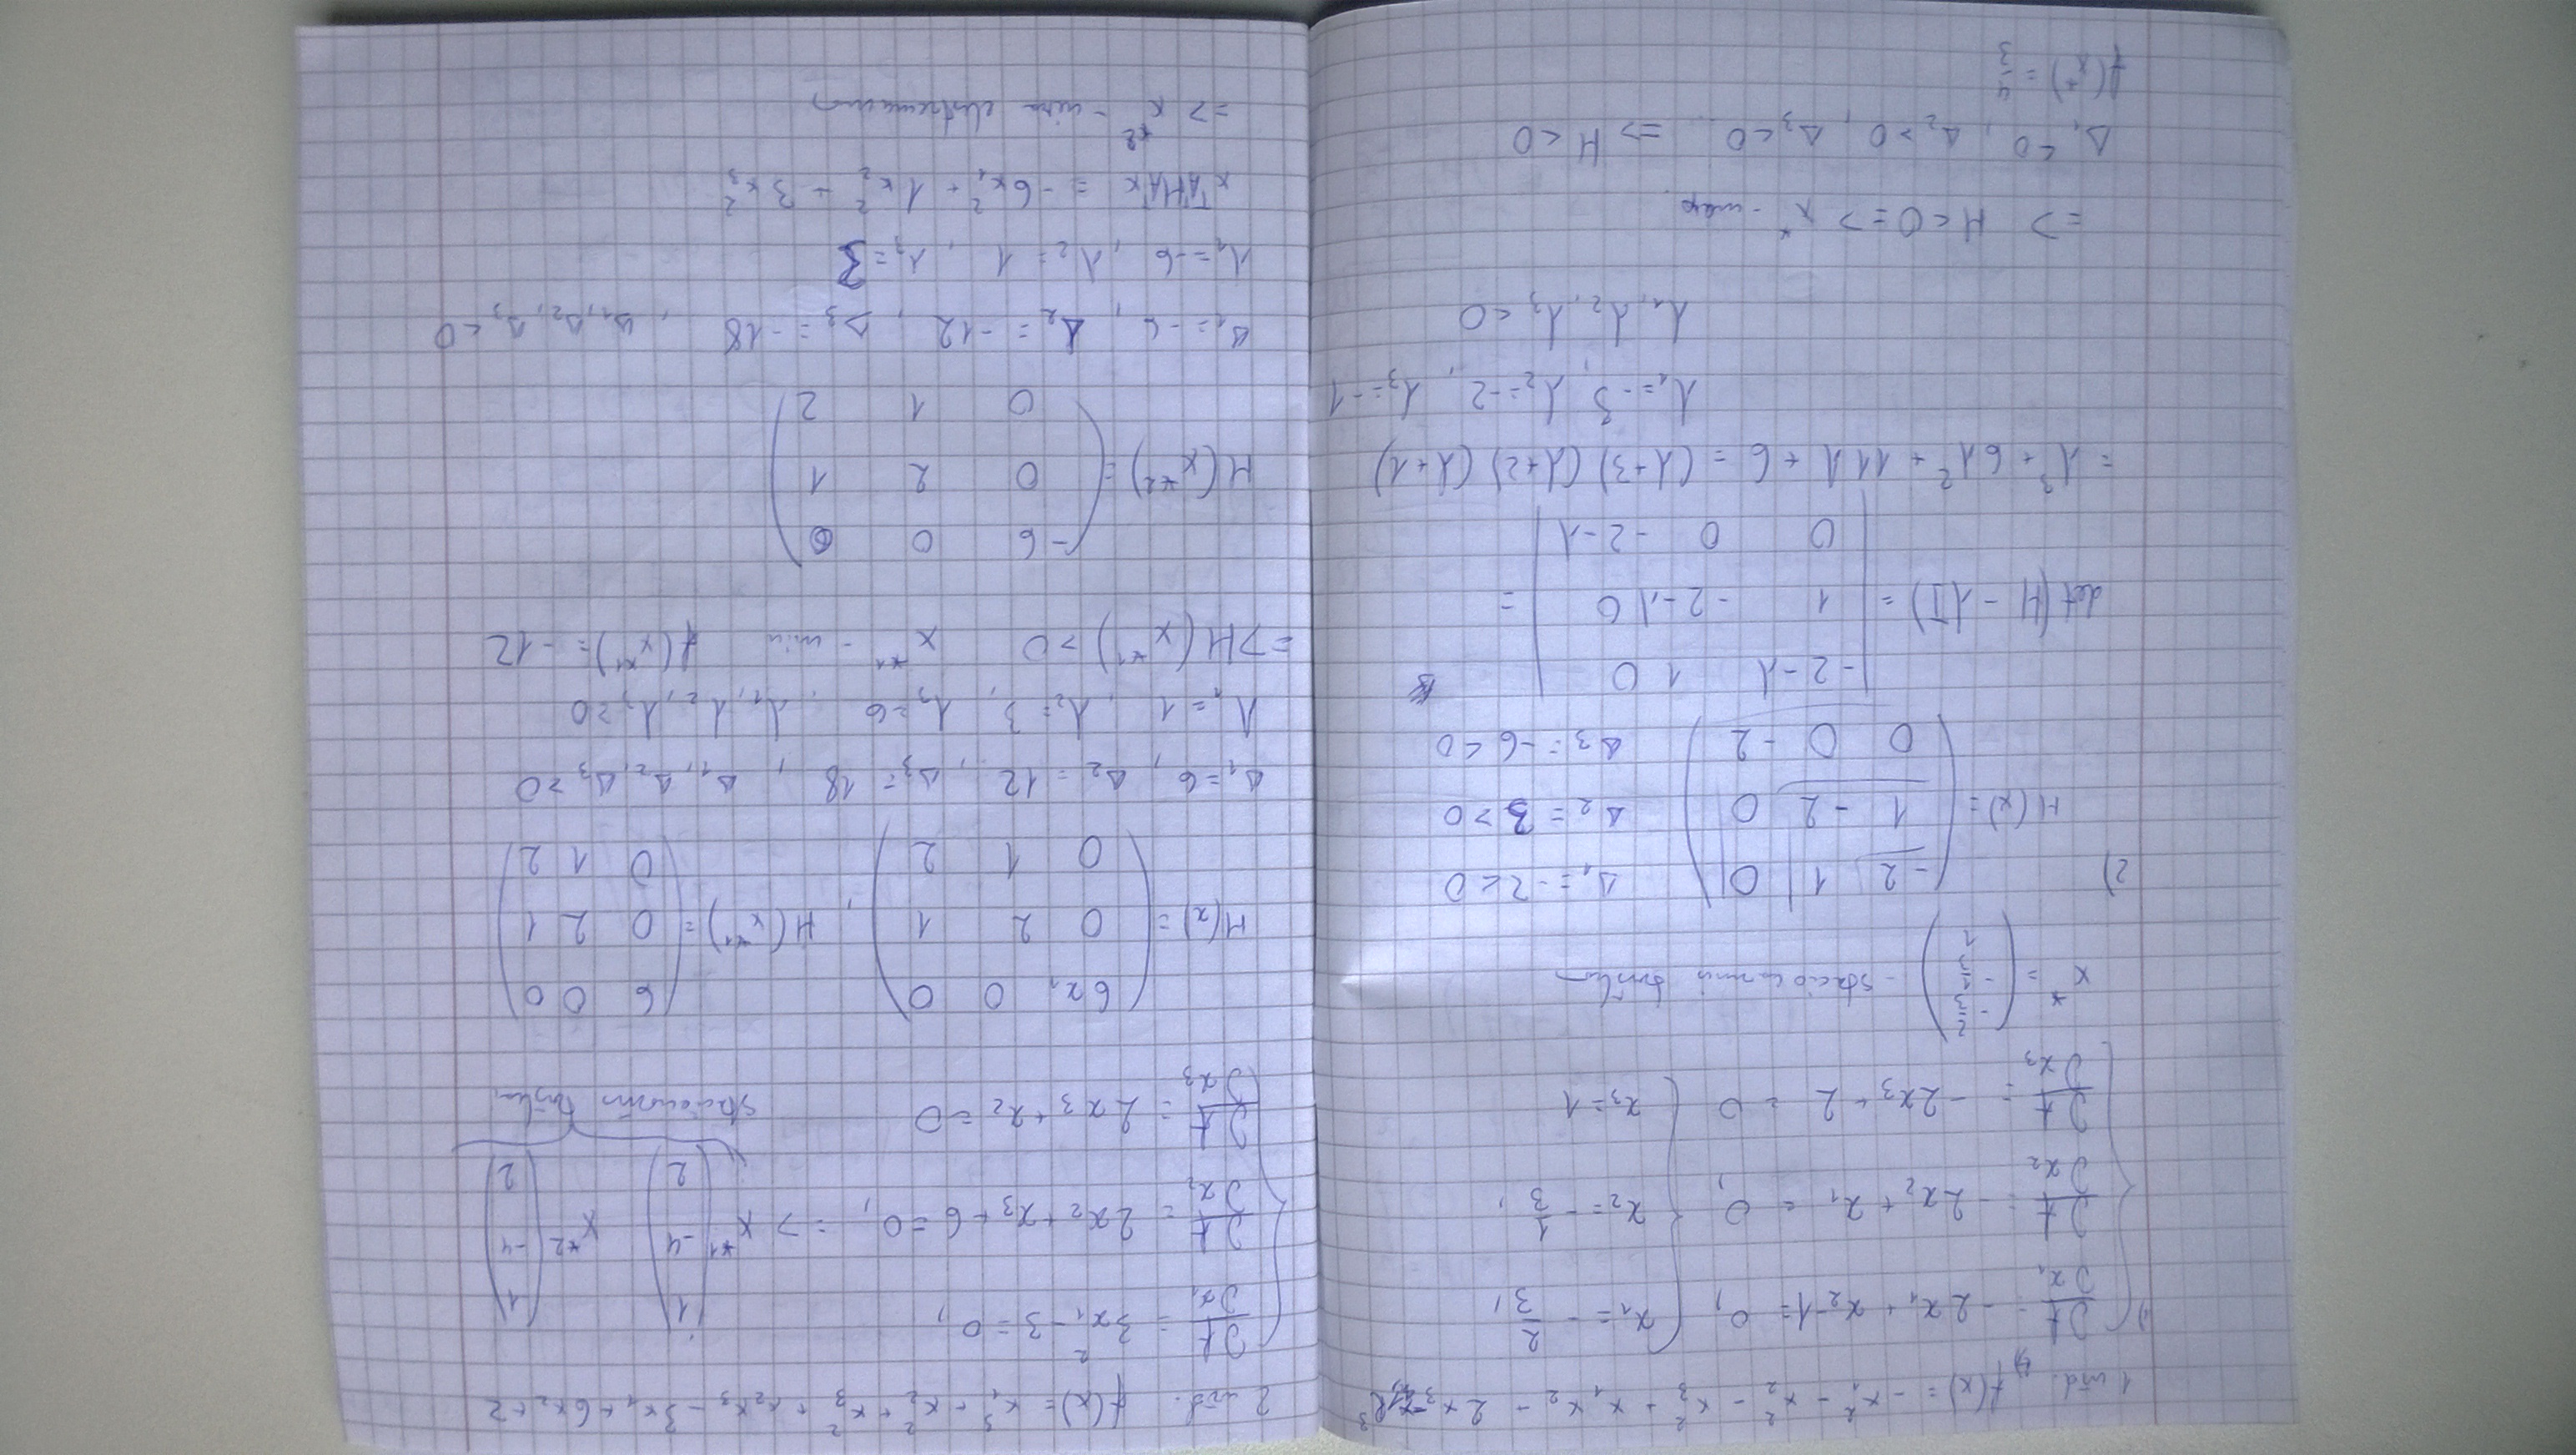 1 užd. f(x) = -x₁² - x₂² - x₃² + x₁x₂ + 2x₃ - x₁
1) { ∂f/∂x₁ = -2x₁ + x₂ - 1 = 0, { x₁ = -2/3,
∂f/∂x₂ = -2x₂ + x₁ = 0, x₂ = -1/3,
∂f/∂x₃ = -2x₃ + 2 = 0 x₃ = 1
x* = (-2/3 -1/3 1) - stacionarus taškas
2)
H(x) = (-2 1 0 Δ₁ = -2 < 0
1 -2 0 Δ₂ = 3 > 0
0 0 -2) Δ₃ = -6 < 0
|-2-λ 1 0
det(H - λI) = 1 -2-λ 0 =
0 0 -2-λ|
= λ³ + 6λ² + 11λ + 6 = (λ+3)(λ+2)(λ+1)
λ₁ = -3, λ₂ = -2, λ₃ = -1
λ₁, λ₂, λ₃ < 0
=> H < 0 => x* - max
Δ₁ < 0, Δ₂ > 0, Δ₃ < 0 => H < 0
f(x*) = 4/3
2 užd. f(x) = x₁³ + x₂² + x₃² + x₂x₃ - 3x₁ + 6x₂ + 2
{ ∂f/∂x₁ = 3x₁² - 3 = 0,
∂f/∂x₂ = 2x₂ + x₃ + 6 = 0, => x*¹ (1 -4 2) x*² (1 -4 2)
∂f/∂x₃ = 2x₃ + x₂ = 0 stacionarūs taškai
H(x) = (6x₁ 0 0 , H(x*¹) = (6 0 0
0 2 1 0 2 1
0 1 2) 0 1 2)
Δ₁ = 6, Δ₂ = 12, Δ₃ = 18, Δ₁, Δ₂, Δ₃ > 0
λ₁ = 1, λ₂ = 3, λ₃ = 6, λ₁, λ₂, λ₃ > 0
=> H(x*¹) > 0 x*¹ - min f(x*¹) = -12
H(x*²) = (-6 0 0
0 2 1
0 1 2)
Δ₁ = -6, Δ₂ = -12, Δ₃ = -18, Δ₁, Δ₂, Δ₃ < 0
λ₁ = -6, λ₂ = 1, λ₃ = 3
xᵀAᵀHAx = -6x₁² + 1x₂² + 3x₃²
=> x*² - nėra ekstremumas